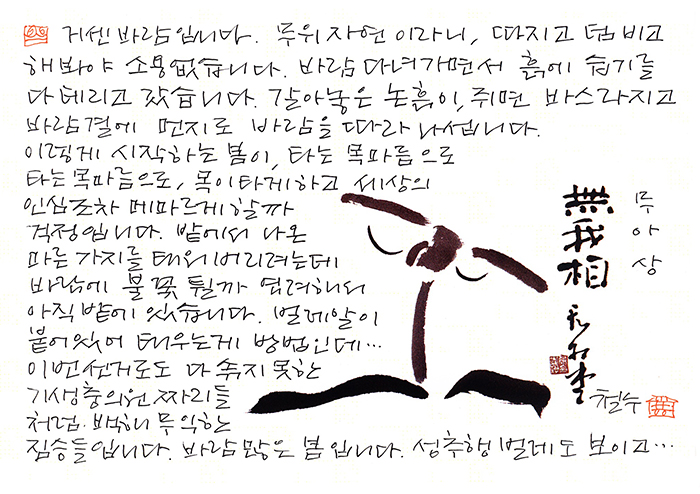 거센 바람입니다. 무위자연이라니, 따지고 덤비고
해봐야 소용없습니다. 바람 다녀가면서 흙에 습기를
다 데리고 갔습니다. 갈아놓은 논흙이, 쥐면 바스라지고
바람결에 먼지로 바람을 따라 나섭니다.
이렇게 시작하는 봄이, 타는 목마름으로
타는 목마름으로, 목이 타게 하고 세상의
인심조차 메마르게 할까
걱정입니다. 밭에서 나온
마른 가지를 태워버리려는데
바람에 불꽃 튈까 염려해서
아직 밭에 있습니다. 벌레알이
붙어있어 태우는게 방법인데…
이번선거로도 다 솎지 못한
기생충의원 짜리들
처럼. 백해무익한
짐승들입니다. 바람 많은 봄입니다. 성추행 벌레도 보이고…
無我相
무아상
철수